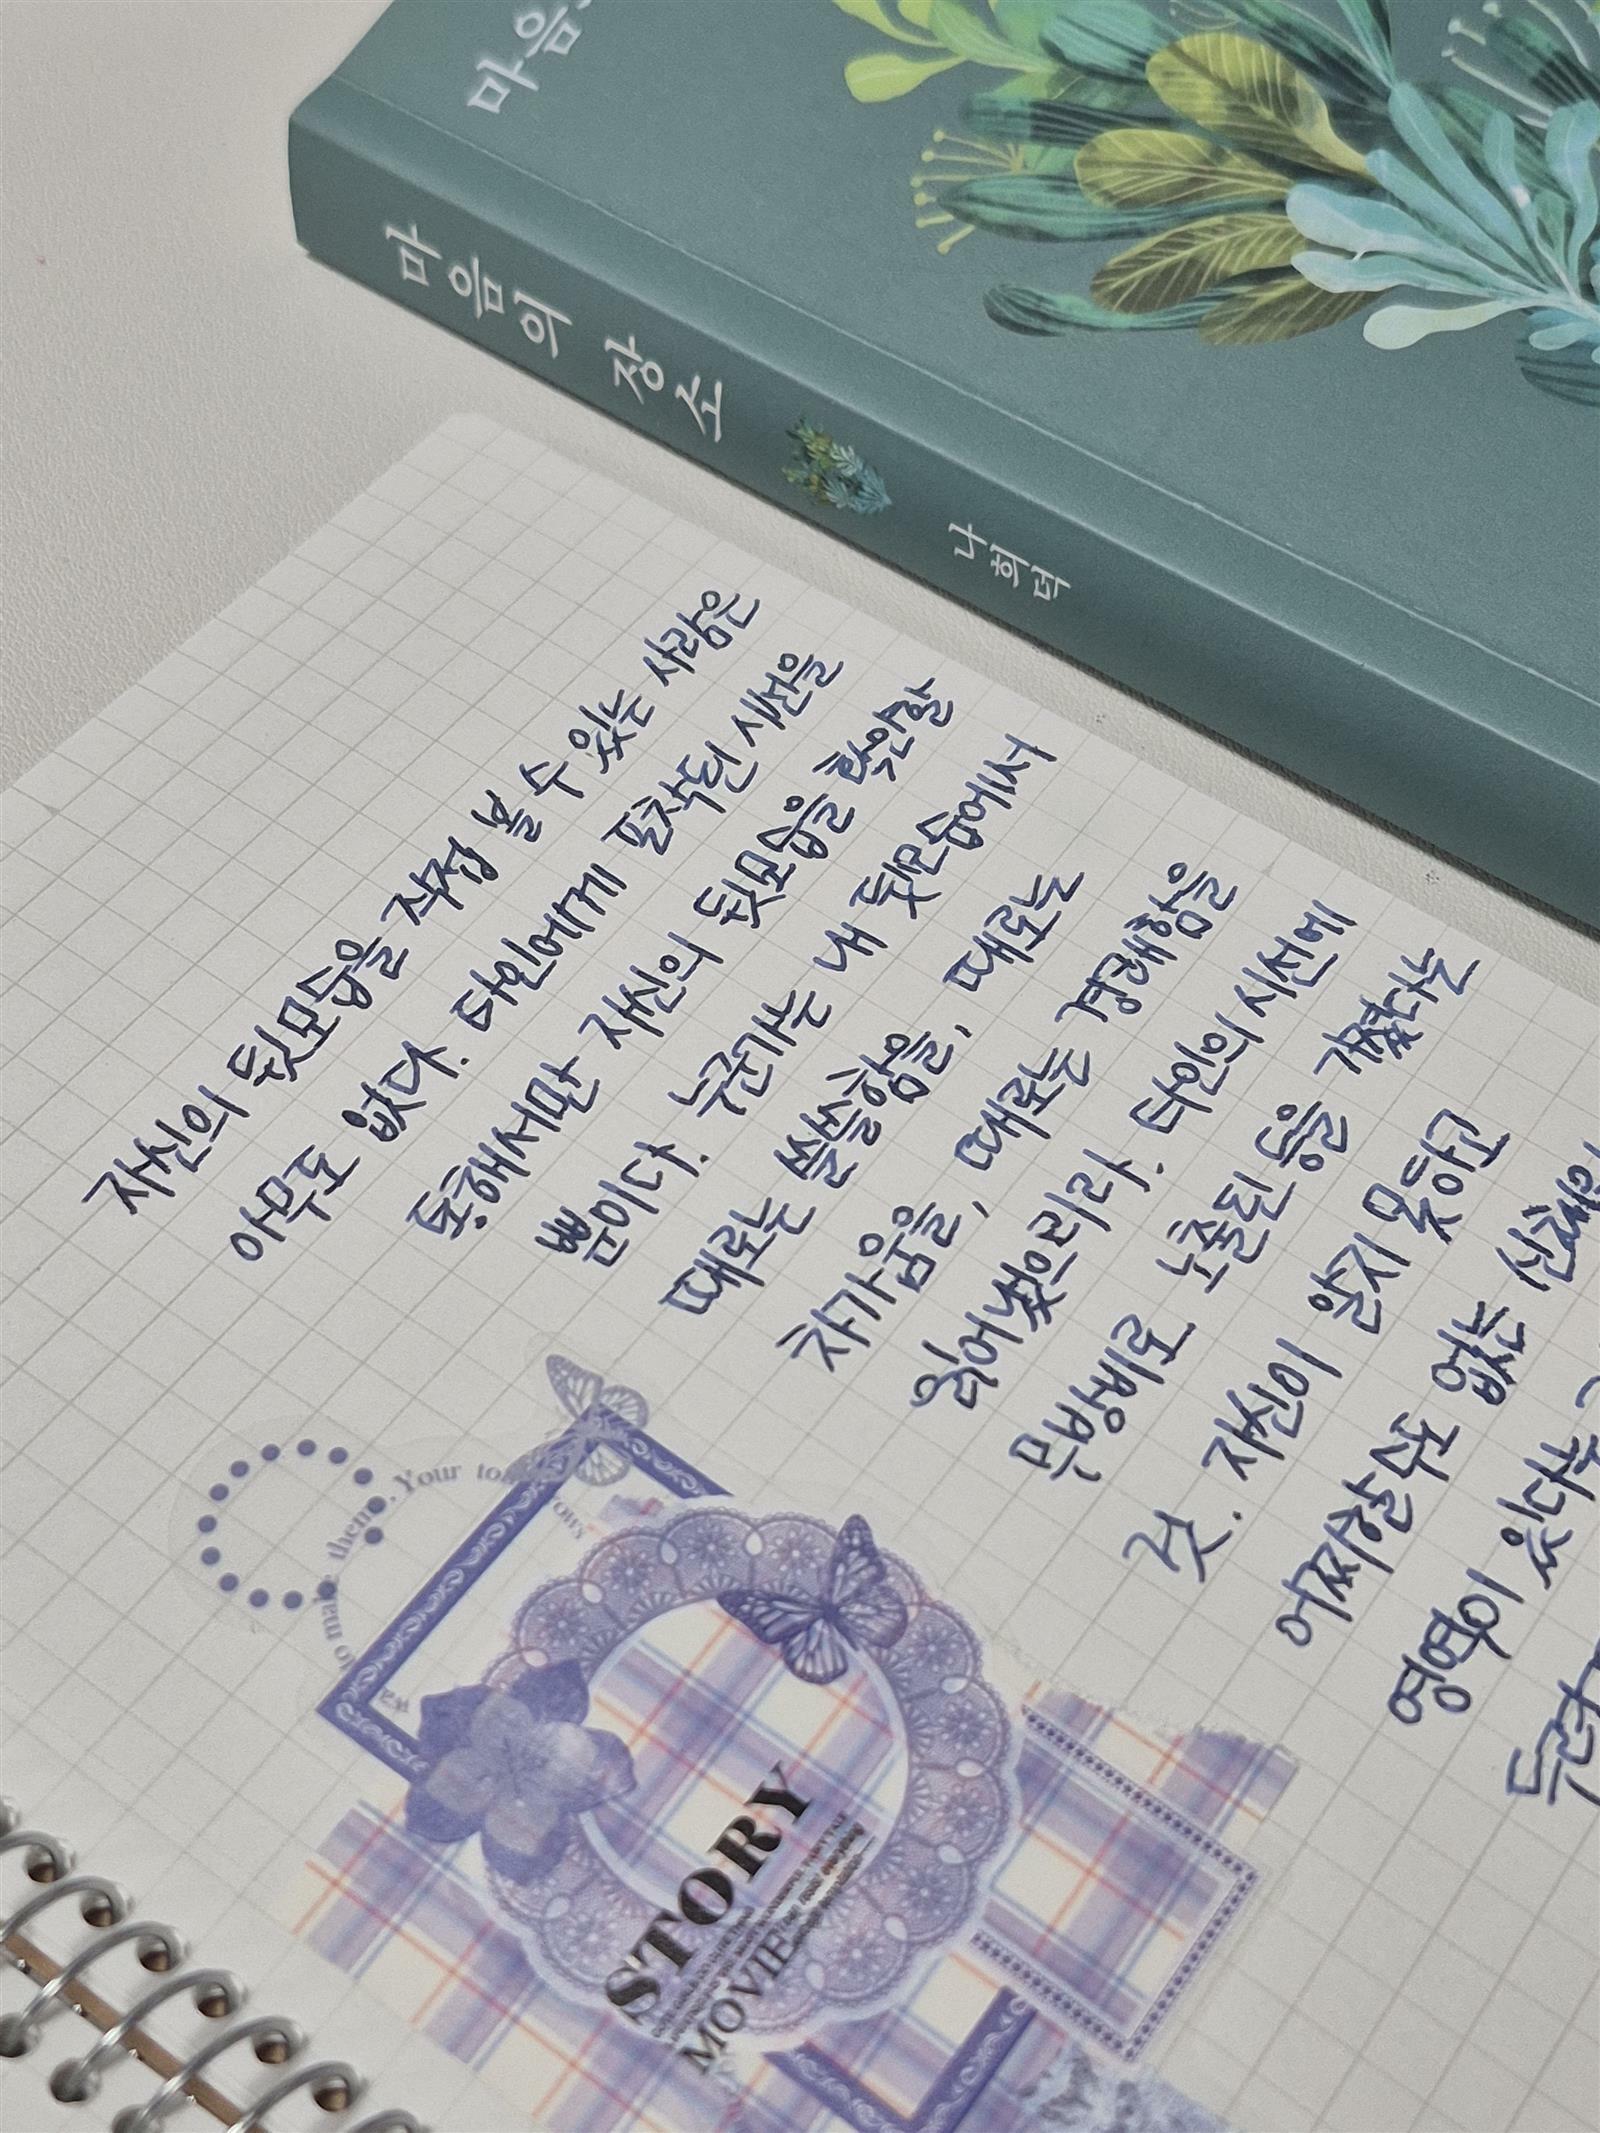 마음
마음의 장소
나희덕
자신의 뒷모습을 직접 볼 수 있는 사람은
아무도 없다. 타인에게 포착된 시선을
통해서만 자신의 뒷모습을 확인할
뿐이다. 누군가는 내 뒷모습에서
때로는 쓸쓸함을, 때로는
차가움을, 때로는 경쾌함을
읽어냈으리라. 타인의 시선에
무방비로 노출된 등을 갖는다는
것. 자신이 알지 못하고
어찌할 수 없는 신체의
영역이 있다는
Your to
them.
to make
ows
STORY
MOVIE